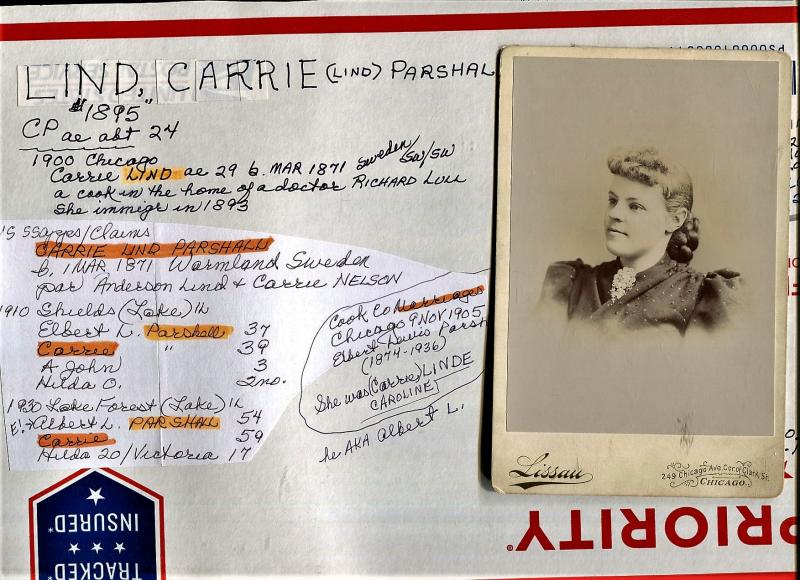 LIND, CARRIE (LIND) PARSHAL
"1895"
CP ae abt 24
1900 Chicago
Carrie LIND ae 29 b. MAR 1871 Sweden/SW/SW
a cook in the home of a doctor RICHARD LULL
She immigr in 1893
SS apps/Claims
CARRIE LIND PARSHALL
b. 1 MAR 1871 Warmland Sweden
par Anderson Lind & Carrie NELSON
1910 Shields (Lake) Il
Elbert L. Parshall 37
Carrie " 39
A John 3
Hilda O. 2mo.
1930 Lake Forest (Lake) Il
E! → Albert L. PARSHALL 54
Carrie 59
Hilda 20/Victoria 17
Cook Co Marriages
Chicago 9 NOV 1905
Elbert Lewis Parsh
(1874-1936)
She was (Carrie) LINDE
CAROLINE)
he AKA Albert L.
Lissau
249 Chicago Ave. Cor. of Clark St.
CHICAGO.
PRIORITY
TRACKED
INSURED